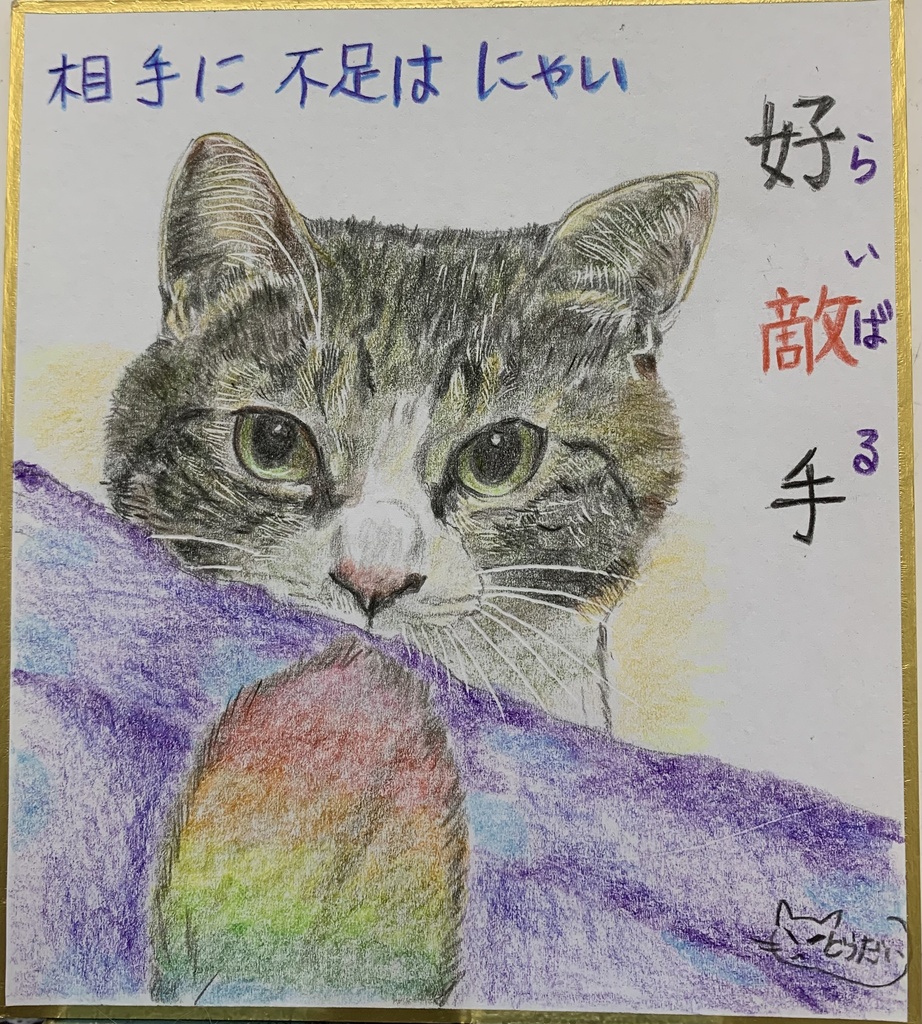 相手に 不足は にゃい
好敵手
らいばる
とらだい